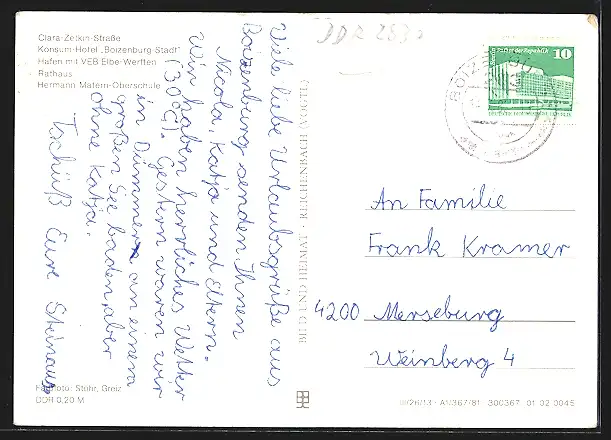 Clara-Zetkin-Straße
Konsum-Hotel „Boizenburg Stadt"
Hafen mit VEB Elbe-Werften
Rathaus
Hermann Matern-Oberschule
DDR
Viele liebe Urlaubsgrüße aus
Boizenburg senden Ihnen
Nicola, Katja und Eltern.
Wir haben herrliches Wetter
(30°C). Gestern waren wir
in Dümmer an einem
großen See baden, aber
ohne Katja.
Tschüß Eure
BILD UND HEIMAT · REICHENBACH (VOGTL)
Palast der Republik
10
An Familie
Frank Kramer
4200 Merseburg
Weinberg 4
Farbfoto: Stöhr, Greiz
DDR 0,20 M
A1/367/81 300367 01 02 0045